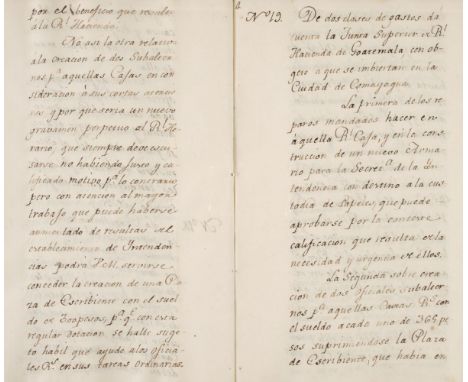 por el beneficio que resulta
á la Rl. Hacienda.
No así la otra relativa
á la creacion de dos Subalter-
nos pa. aquellas Cajas en con-
sideracion á sus cortas atencio-
nes, y por que seria un nuevo
gravamen perpetuo al Rl. He-
rario, que siempre debe escu-
sarse no habiendo Justo y ca-
lificado motivo pa. lo contrario;
pero con atencion al mayor
trabajo que puede haberse
aumentado de resultas del
establecimiento de Intenden-
cias podrá V.M. servirse
conceder la creacion de una Pla-
za de Escribiente con el suel-
do de 200 pesos, ps. q. con esta
regular dotacion se halle suge-
to habil que ayude á los oficia-
les Rs. en sus tareas ordinarias.
No. 19. De dos clases de gastos dá
cuenta la Junta Superior de Rl.
Hacienda de Goatemala con ob-
geto a que se imbiertan en la
Ciudad de Comayagua.
La primera de los re-
paros mandados hacer en
aquella Rl. Caja, y en la cons-
truccion de un nuevo Arma-
rio para la Secreta. de la In-
tendencia con destino a la cus-
todia de Papeles, que puede
aprobarse por la
calificacion que resulta de la
necesidad y urgencia de ellos.
La Segunda sobre crea-
cion de dos oficiales Subalter-
nos pa. aquellas Caxas Rs. con
el sueldo a cada uno de 365 pe-
sos suprimiendose la Plaza
de Escribiente, que habia en